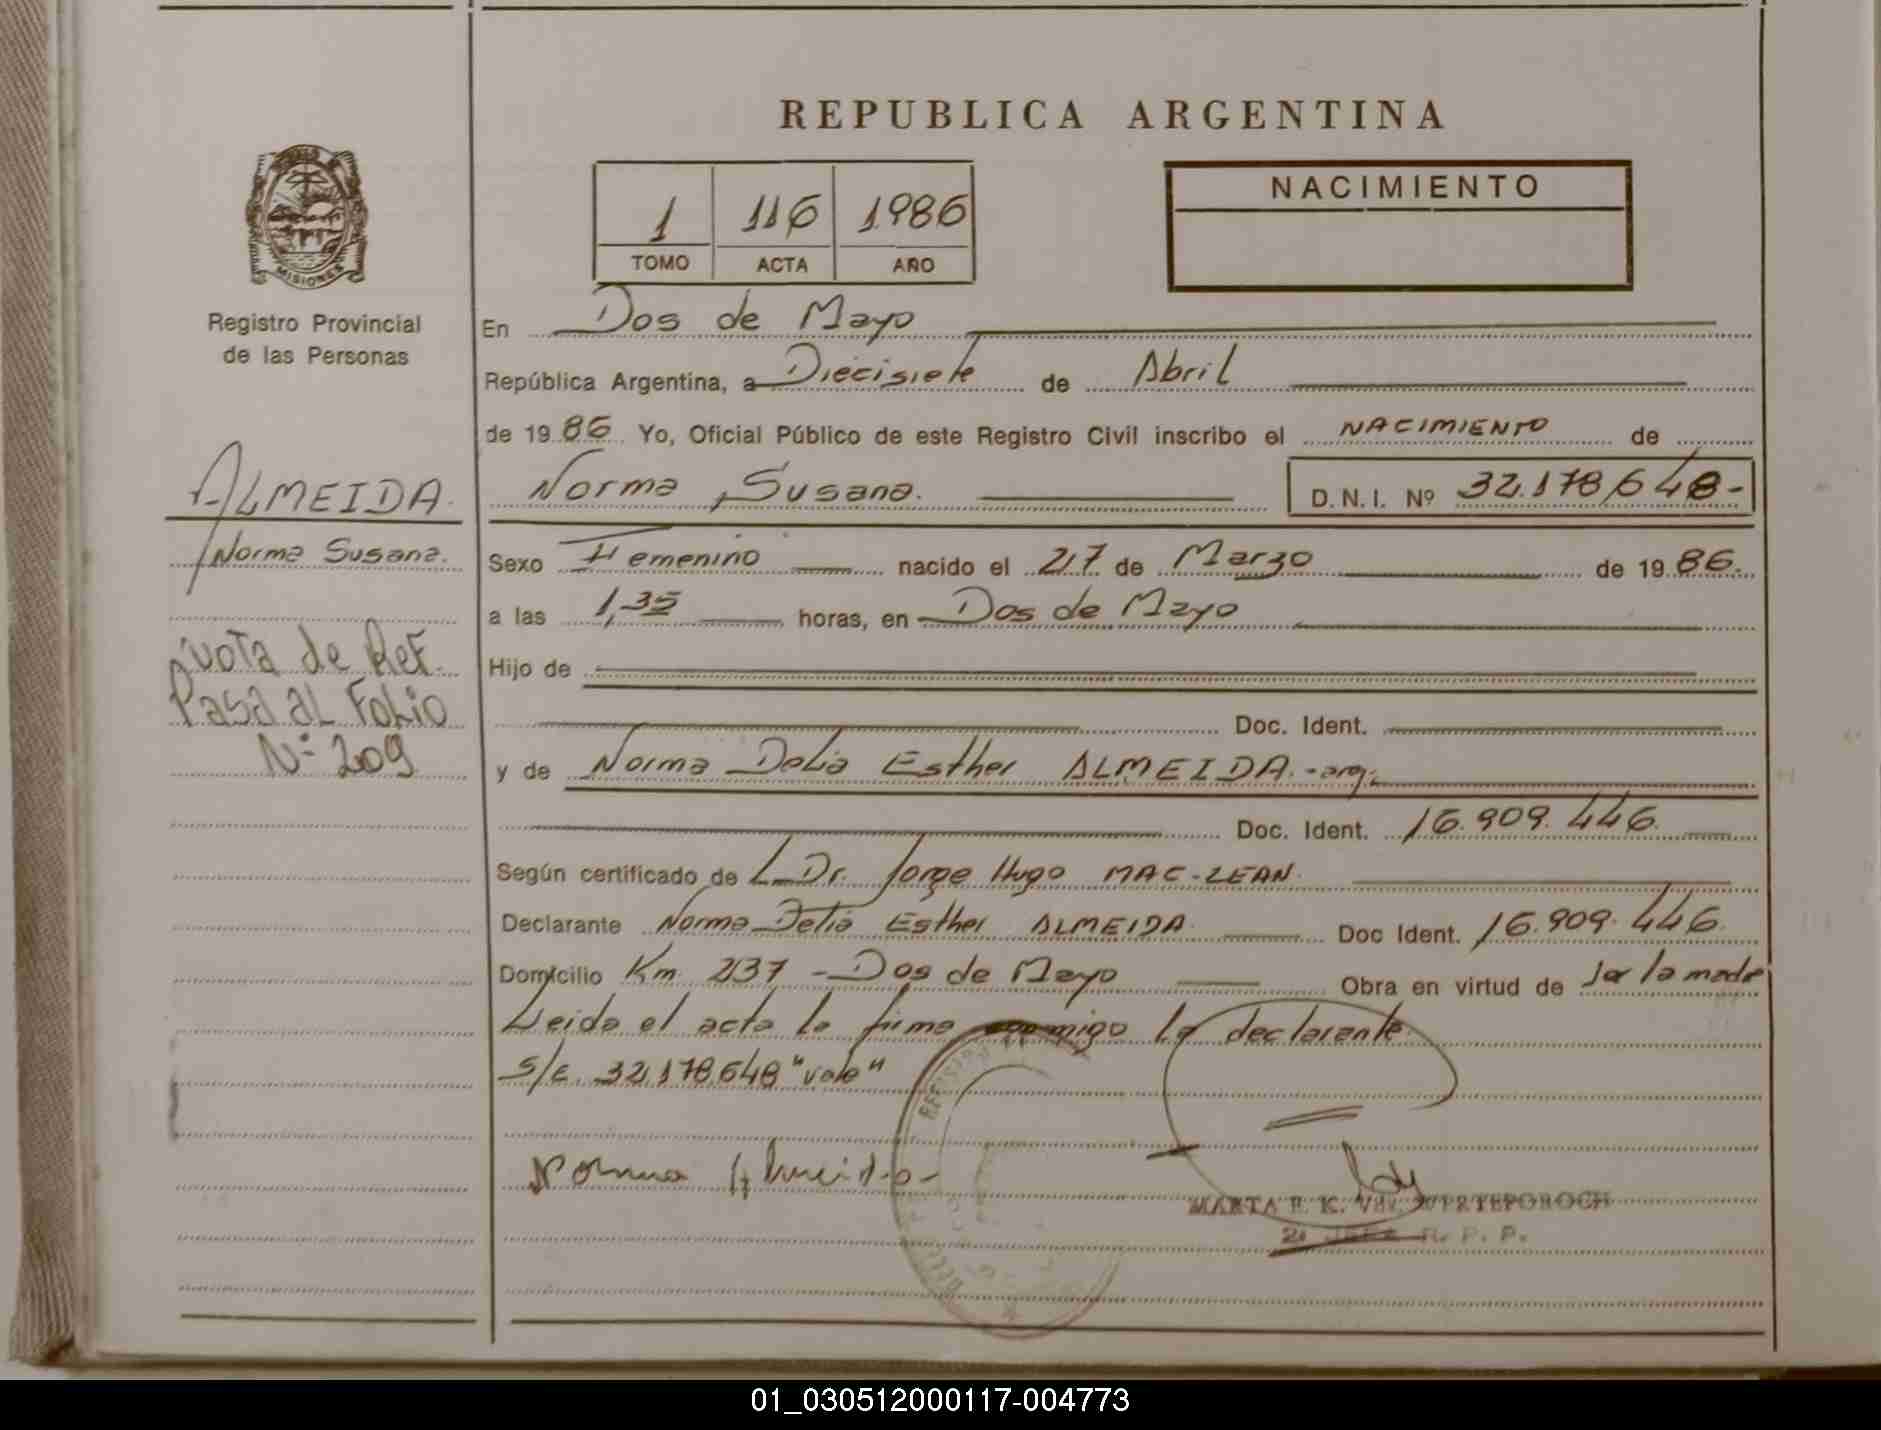 REPUBLICA ARGENTINA
1 116 1986
TOMO ACTA AÑO
NACIMIENTO
MISIONES
Registro Provincial
de las Personas
ALMEIDA.
Norma Susana.
Nota de Ref.
Pasa al Folio
Nº 209
En Dos de Mayo
República Argentina, a Diecisiete de Abril
de 1986 Yo, Oficial Público de este Registro Civil inscribo el NACIMIENTO de
Norma Susana. D.N.I. Nº 32.178.648-
Sexo Femenino nacido el 27 de Marzo de 1986.
a las 1,35 horas, en Dos de Mayo
Hijo de
Doc. Ident.
y de Norma Delia Esther ALMEIDA.-arg.
Doc. Ident. 16.909.446.
Según certificado de L Dr. Jorge Hugo MAC-LEAN.
Declarante Norma Delia Esther ALMEIDA. Doc Ident. 16.909.446.
Domicilio Km. 237 - Dos de Mayo Obra en virtud de ser la madre
Leida el acta la firma conmigo la declarante.
S/E. 32.178.648 "vale"
Norma Almeida
MARTA E. K.
R. P. P.
01_030512000117-004773